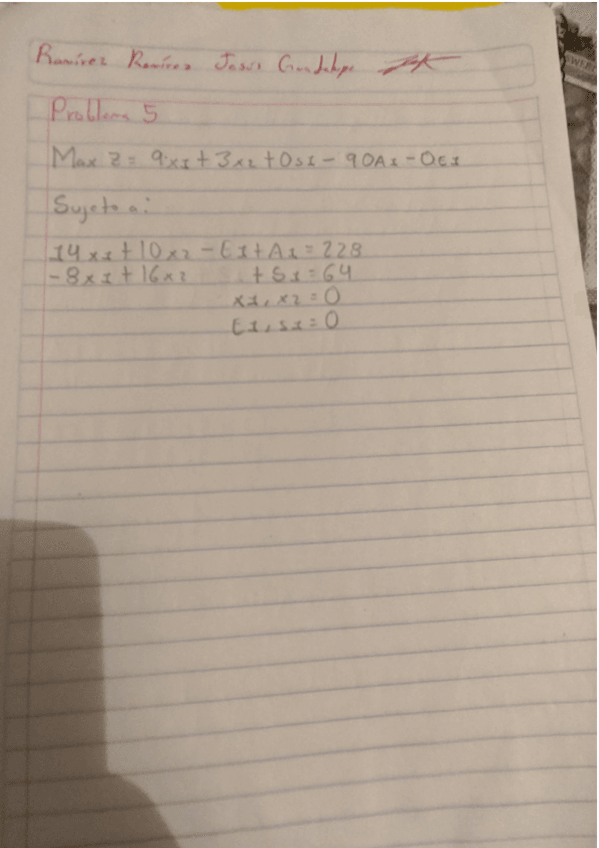 Ramírez Ramírez Jesús Guadalupe
Problema 5
Max Z = 9x1 + 3x2 + 0s1 - 90A1 - 0E1
Sujeto a:
14x1 + 10x2 - E1 + A1 = 228
-8x1 + 16x2 + S1 = 64
x1, x2 = 0
E1, s1 = 0